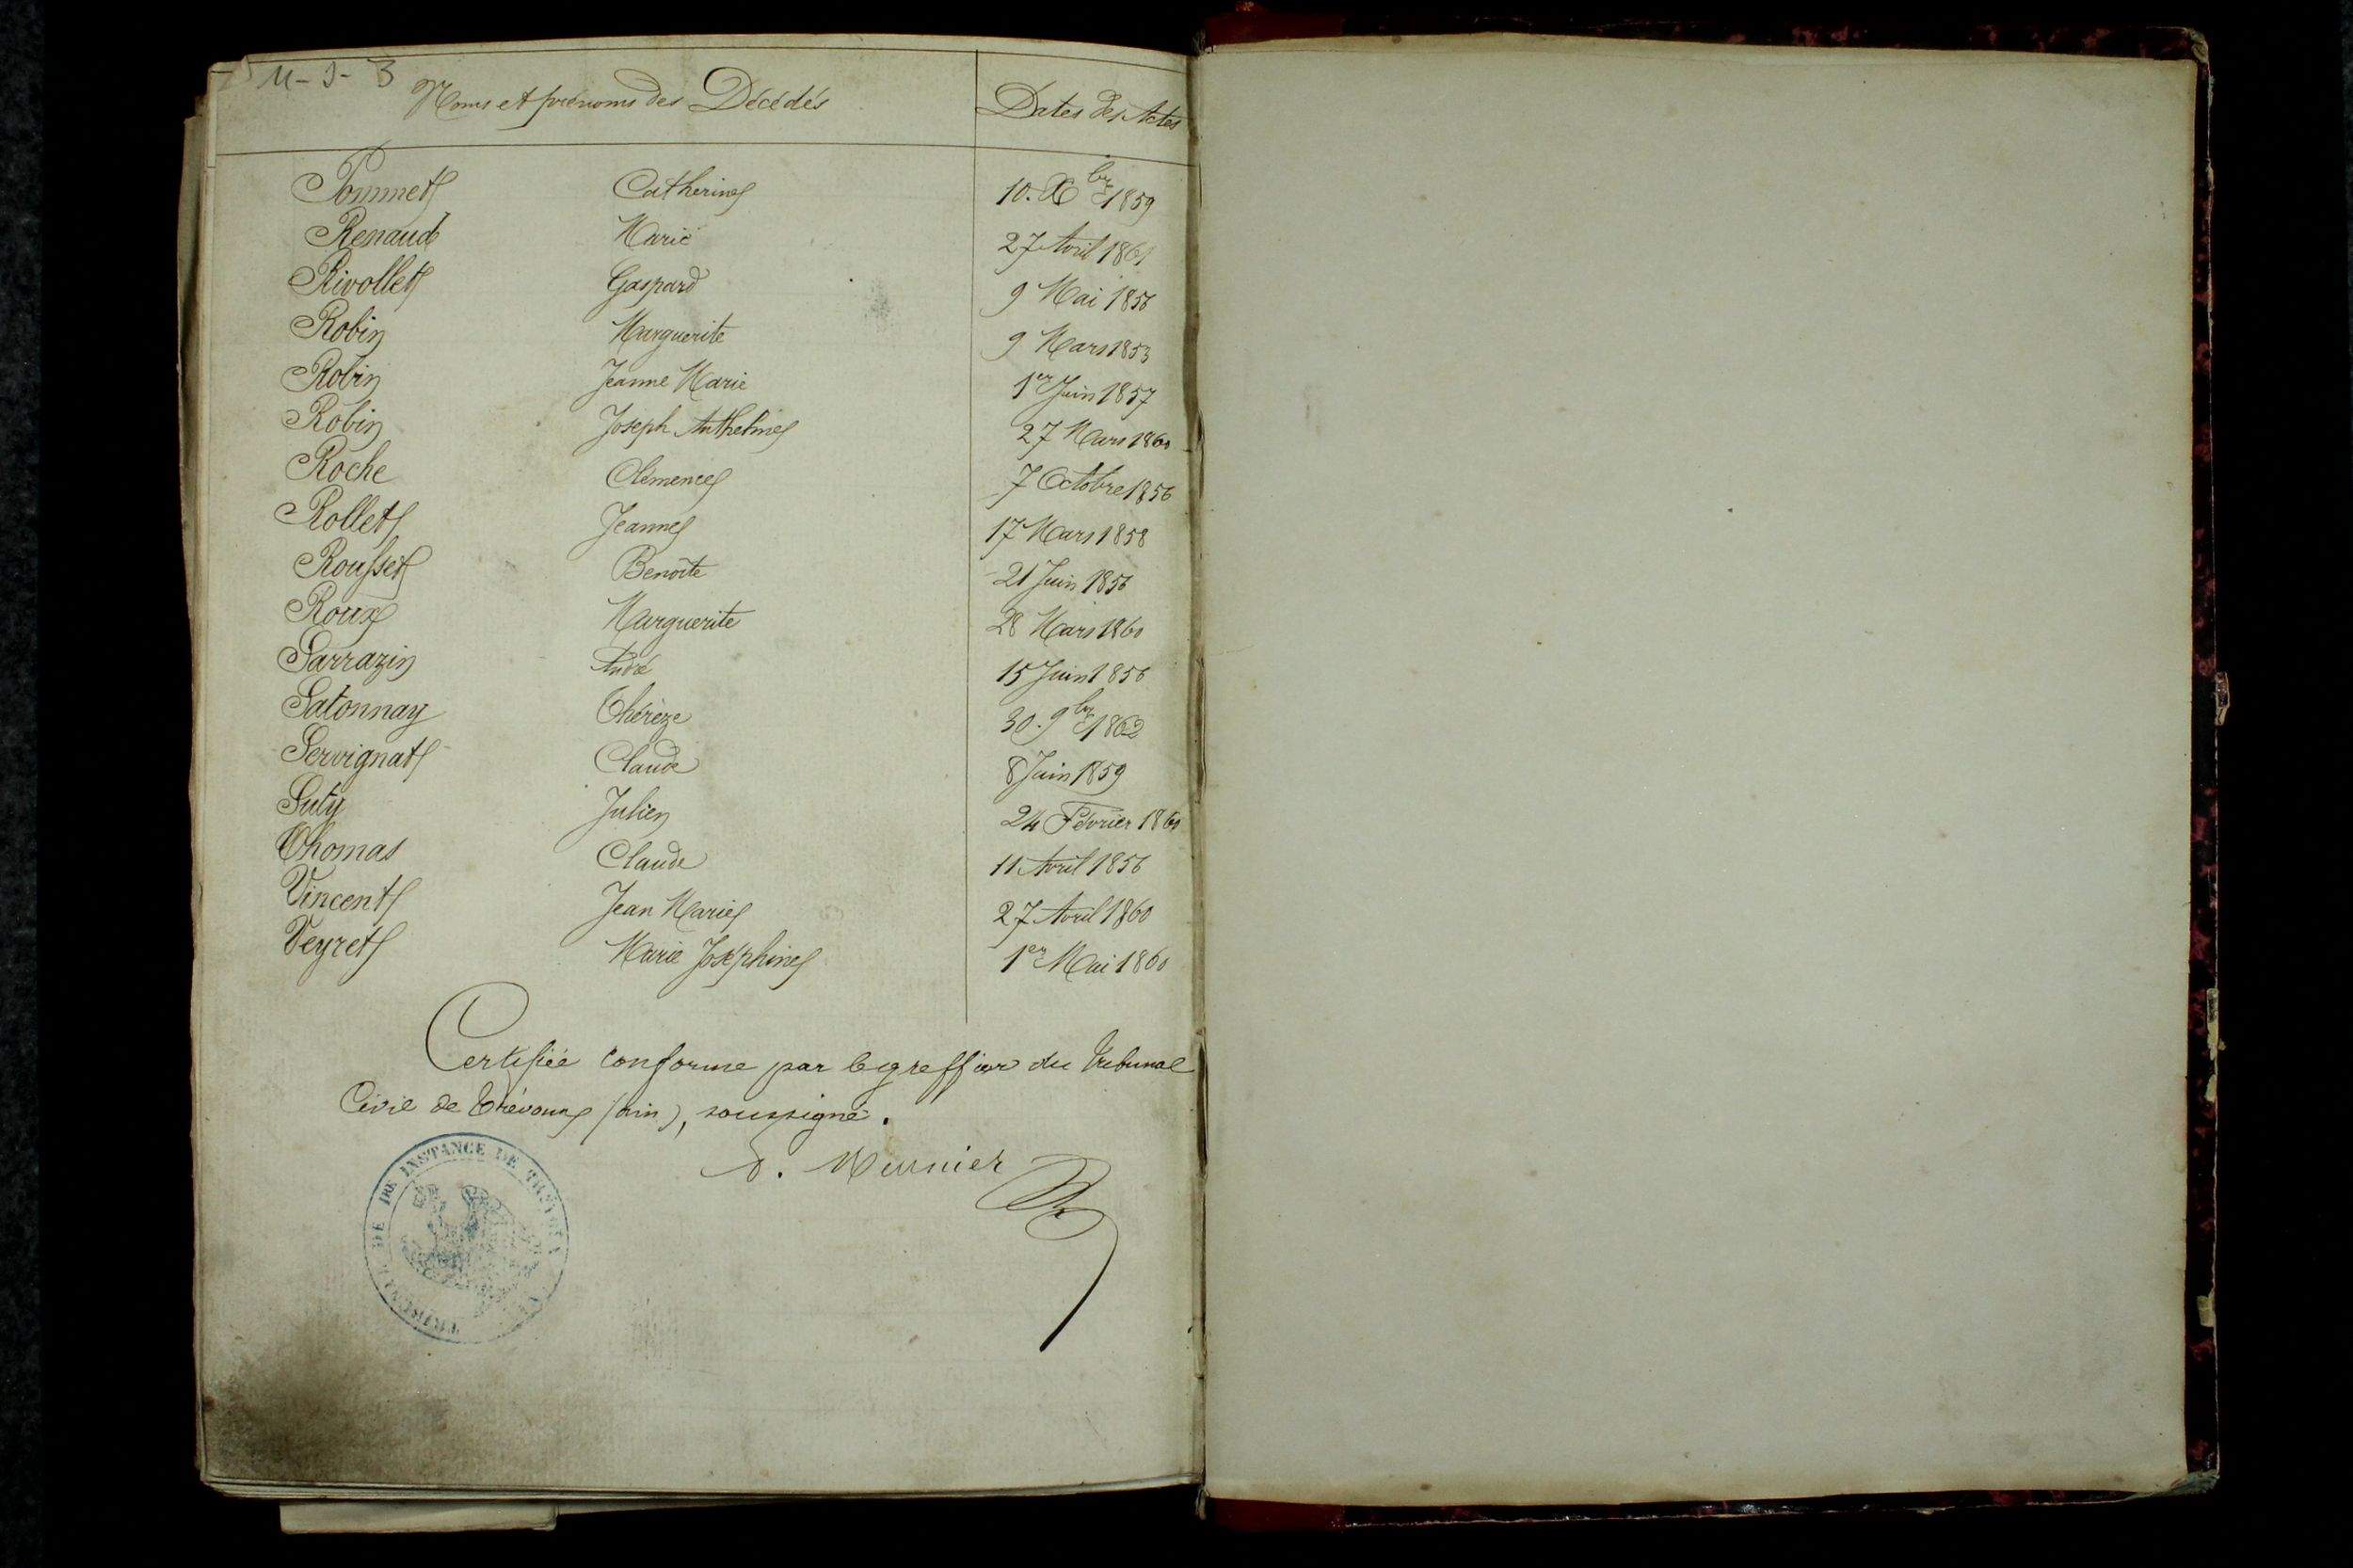 M-J-3
Noms et prénoms des Décédés Dates des Actes
Pommet Catherine 10. Xbre 1859
Renaud Marie 27 Avril 1861
Rivollet Gaspard 9 Mai 1856
Robin Marguerite 9 Mars 1853
Robin Jeanne Marie 1er Juin 1857
Robin Joseph Anthelme 27 Mars 1860
Roche Clémence 7 Octobre 1856
Rollet Jeanne 17 Mars 1858
Rousset Benoîte 21 Juin 1856
Roux Marguerite 28 Mars 1860
Sarrazin André 15 Juin 1856
Satonnay Thérèze 30. 9bre 1862
Servignat Claude 8 Juin 1859
Suty Julien 24 Février 1860
Thomas Claude 11 Avril 1856
Vincent Jean Marie 27 Avril 1860
Veyret Marie Joséphine 1er Mai 1860
Certifiée conforme par le greffier du tribunal
Civil de Trévoux (ain), soussigné.
Meunier
TRIBUNAL DE 1RE INSTANCE DE TRÉVOUX